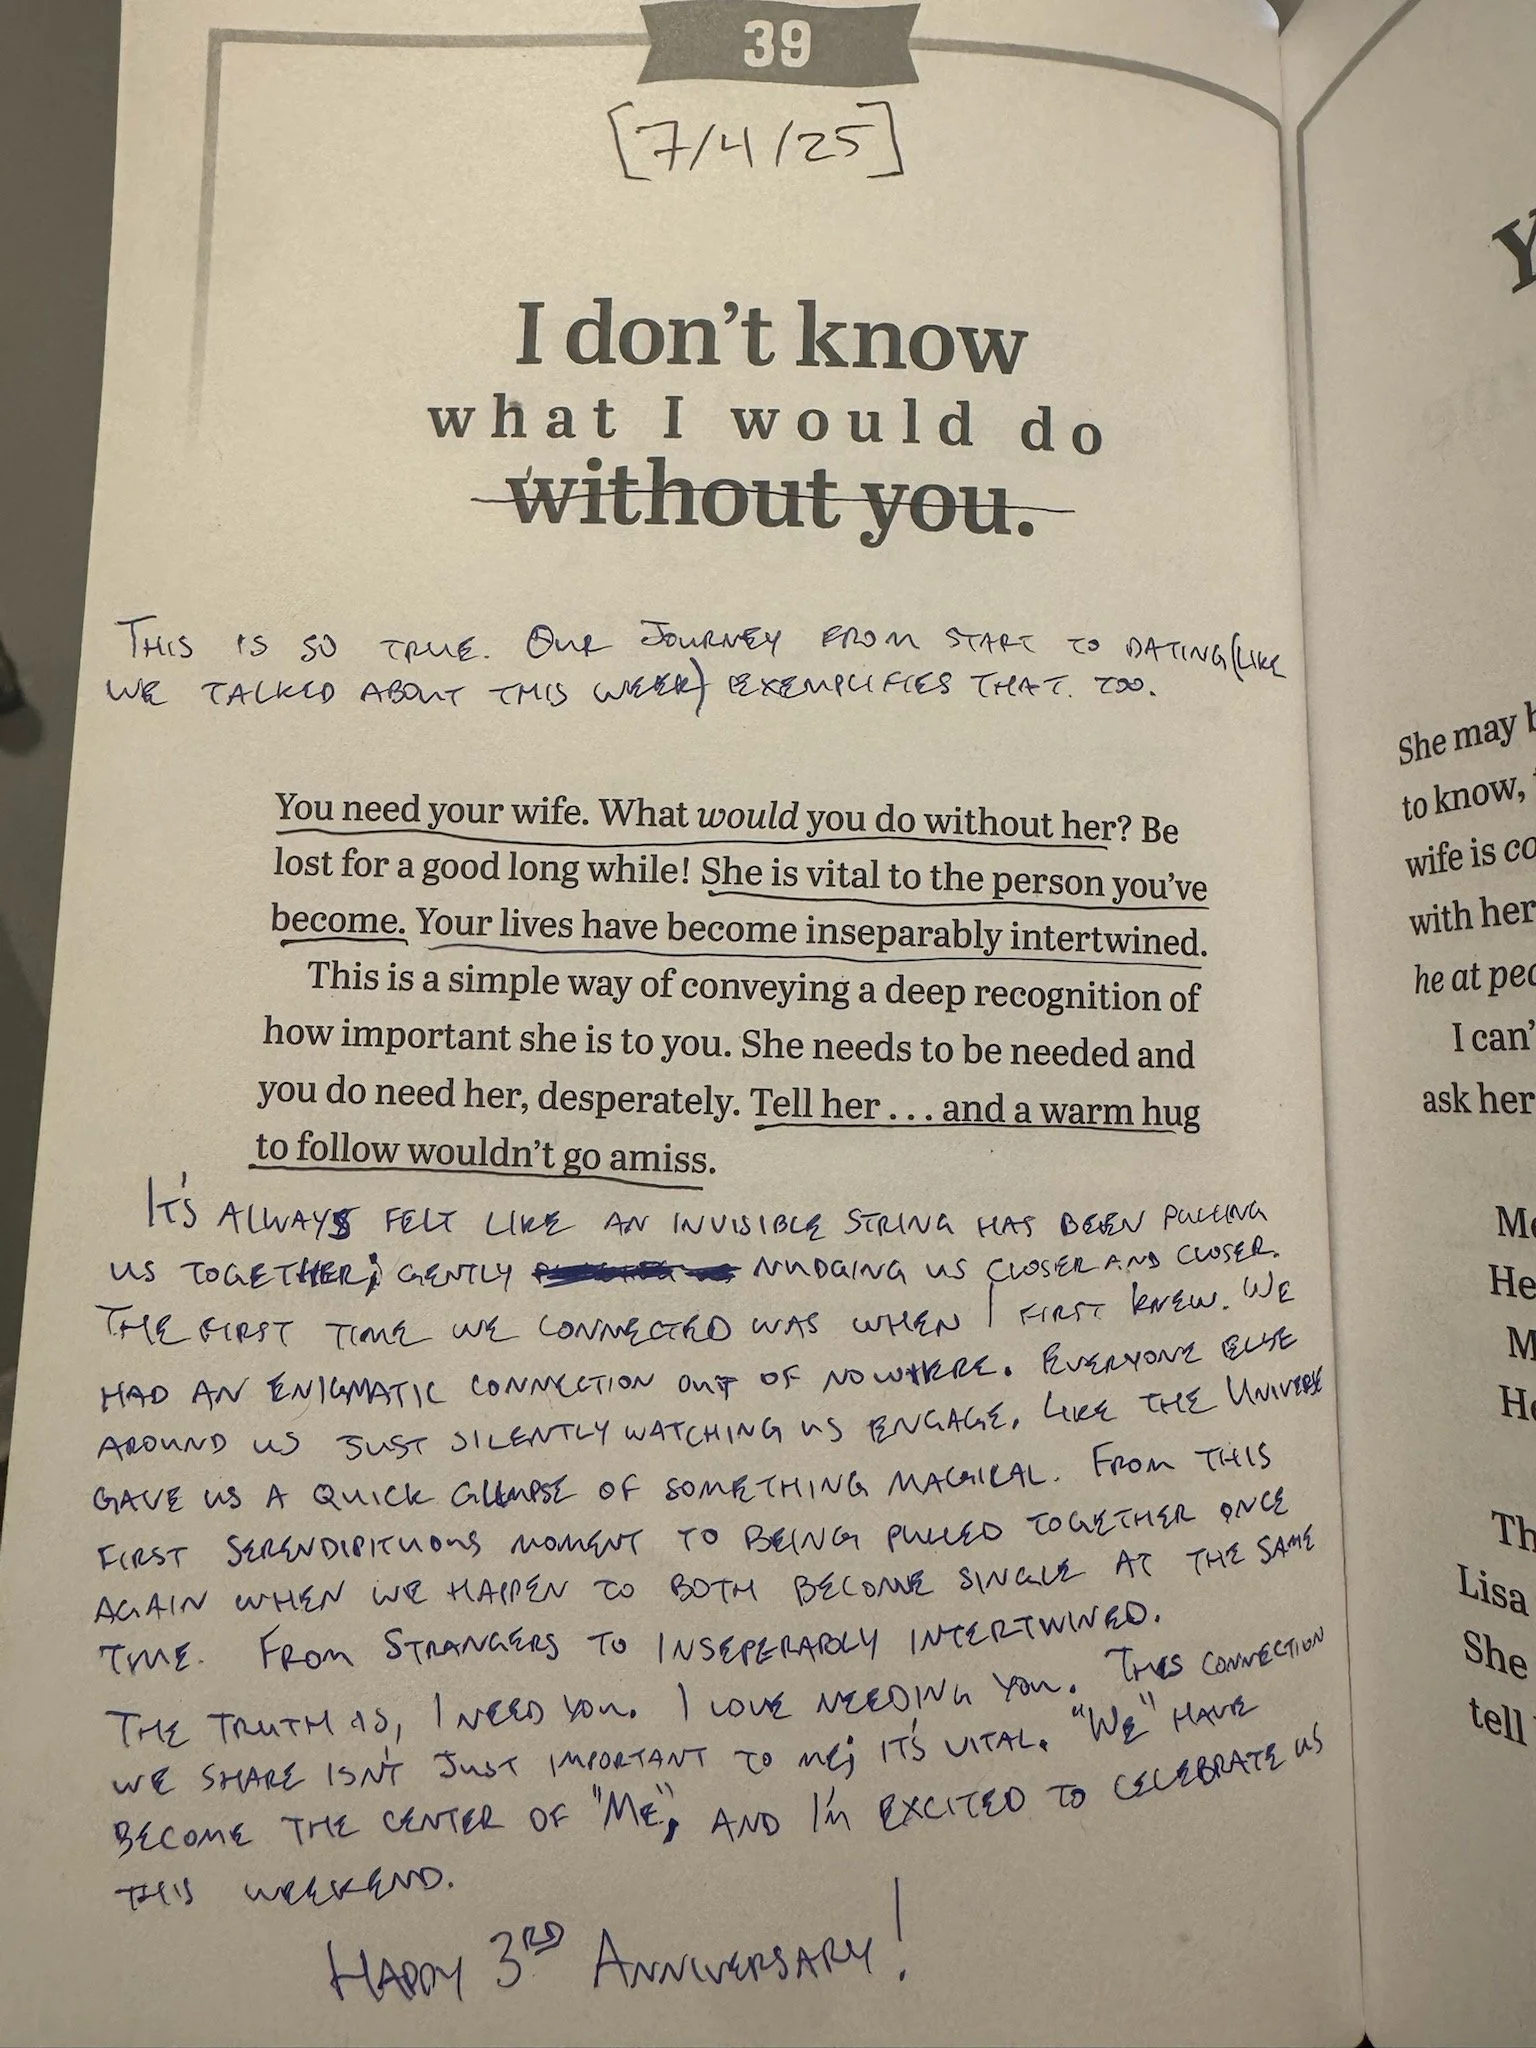 39
[7/4/25]
I don't know
what I would do
without you.
THIS IS SO TRUE. OUR JOURNEY FROM START TO DATING (LIKE
WE TALKED ABOUT THIS WEEK) EXEMPLIFIES THAT TOO.
You need your wife. What would you do without her? Be
lost for a good long while! She is vital to the person you've
become. Your lives have become inseparably intertwined.
This is a simple way of conveying a deep recognition of
how important she is to you. She needs to be needed and
you do need her, desperately. Tell her . . . and a warm hug
to follow wouldn't go amiss.
IT'S ALWAYS FELT LIKE AN INVISIBLE STRING HAS BEEN PULLING
US TOGETHER; GENTLY NUDGING US CLOSER AND CLOSER.
THE FIRST TIME WE CONNECTED WAS WHEN I FIRST KNEW. WE
HAD AN ENIGMATIC CONNECTION OUT OF NOWHERE. EVERYONE ELSE
AROUND US JUST SILENTLY WATCHING US ENGAGE. LIKE THE UNIVERSE
GAVE US A QUICK GLIMPSE OF SOMETHING MAGICAL. FROM THIS
FIRST SERENDIPITUOUS MOMENT TO BEING PULLED TOGETHER ONCE
AGAIN WHEN WE HAPPEN TO BOTH BECOME SINGLE AT THE SAME
TIME. FROM STRANGERS TO INSEPERABLY INTERTWINED.
THE TRUTH IS, I NEED YOU. I LOVE NEEDING YOU. THIS CONNECTION
WE SHARE ISN'T JUST IMPORTANT TO ME; IT'S VITAL. "WE" HAVE
BECOME THE CENTER OF "ME", AND I'M EXCITED TO CELEBRATE US
THIS WEEKEND.
HAPPY 3RD ANNIVERSARY!
She may
to know,
wife is
with her
he at
I can'
ask her
He
Lisa
She
tell